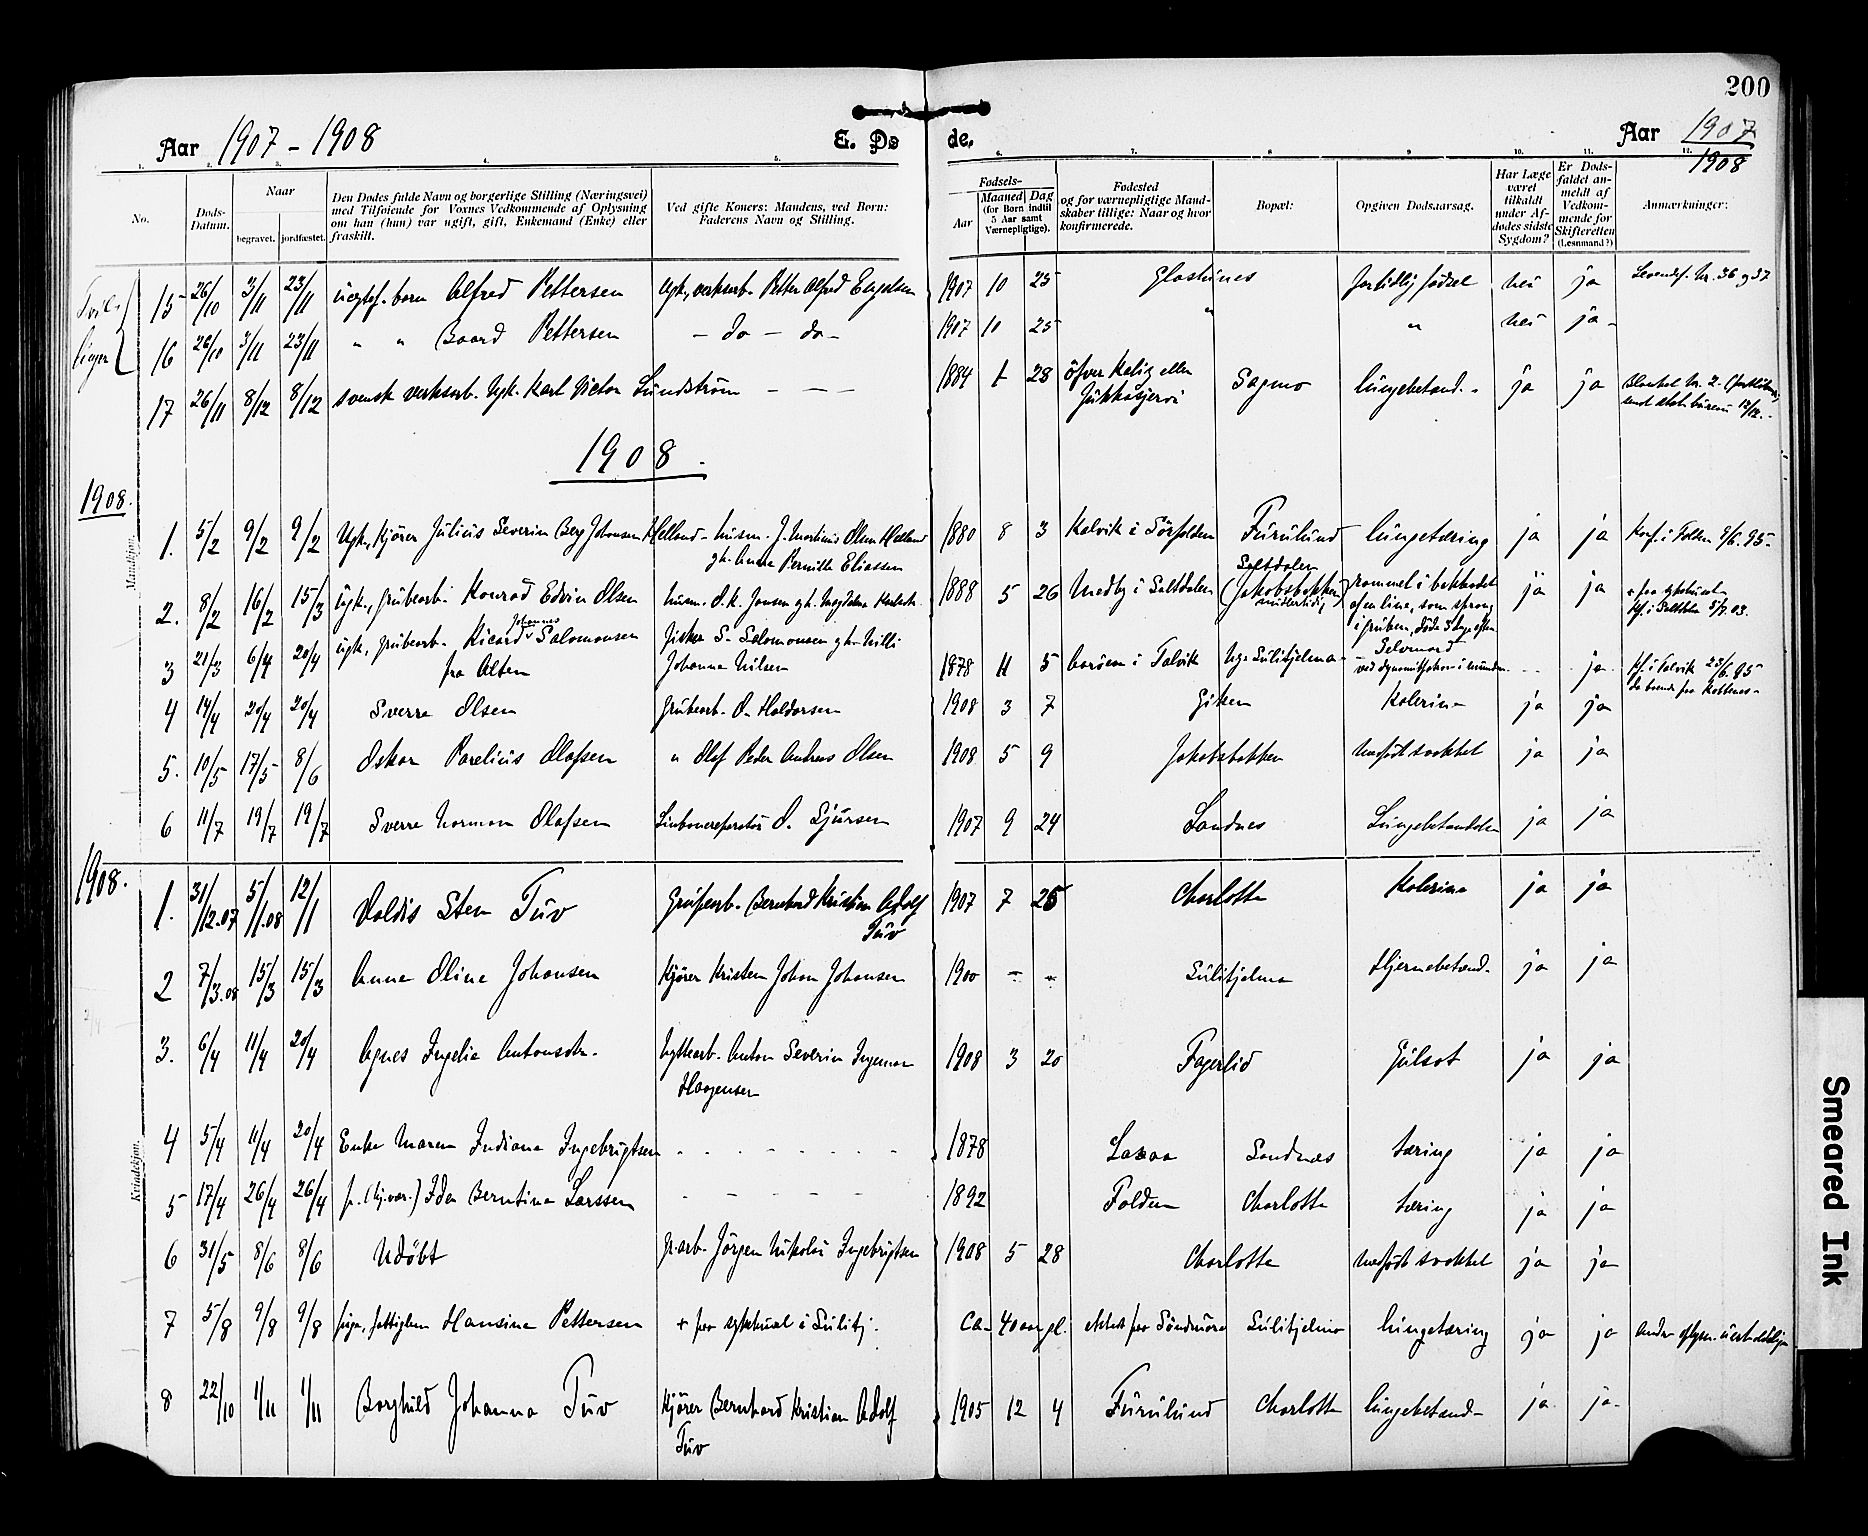 200
Aar 1907-1908
E. Dø de.
Aar 1907
1908
1. 2. 3. 4. 5. 6. 7. 8 9 10. 11. 12.
No.
Døds-Datum.
Naar
begravet. jordfæstet.
Den Dødes fulde Navn og borgerlige Stilling (Næringsvei) med Tilføiende for Voxnes Vedkommende af Oplysning om han (hun) var ugift, gift, Enkemand (Enke) eller fraskilt.
Ved gifte Koners: Mandens, ved Børn: Faderens Navn og Stilling.
Fødsels-
Aar
Maaned Dag
(for Børn indtil 5 Aar samt Værnepligtige).
Fødested og for værnepligtige Mandskaber tillige: Naar og hvor konfirmerede.
Bopæl:
Opgiven Dødsaarsag.
Har Læge været tilkaldt under Afdødes sidste Sygdom?
Er Dødsfaldet anmeldt af Vedkommende for Skifteretten (Lensmand?)
Anmærkninger:
15 26/10 3/11 23/11 uegtef. barn Alfred Pettersen Ugk., verksarb. Petter Alfred Engelsen 1907 10 25 Glastunes for tidlig fødsel nei ja Levendef. Nr. 36 og 37
16 26/10 3/11 23/11 " " Baard Pettersen - do - do - 1907 10 25 " " nei ja -
17 26/11 8/12 8/12 svensk verksarb. Ugk. Karl Victor Lundstrøm - - - 1884 1 28 Öfver Kalix eller Jukkasjervi Sagmo lungebetænd. - ja ja
1908.
1908.
Mandkjøn.
1. 5/2 9/2 9/2 Ugk., Kjører Julius Severin Berg Johansen Helland - husm. J. Martinus Olsen Helland gh. Anna Pernille Eliassen 1880 8 3 Kalvik i Sørfolden Furulund lungetæring ja ja Konf. i Folden 9/6. 95 -
2. 8/2 16/2 15/3 Ugk., grubearb. Konrad Edvin Olsen husm. O. K. Jensen gh. Magdalena 1888 5 26 Medby i Saltdalen Saltdalen (Jakobsbakken) midlertidig rammet i bakhodet af en line, som sprang i gruben, døde ja ja
3 21/3 6/4 20/4 ugk., grubearb. Ricard Johannes Salomonsen fra Alten Fisker S. Salomonsen gh. Milli Johanna Nilsen 1878 11 5 i Talvik Sulitjelma - Selvmord - ved dynamitpatron i munden - - ja Kf. i Talvik 23/6. 95
4 14/4 20/4 20/4 Sverre Olsen Grubearb. O. Haldorsen 1908 3 7 Giken Kolerina ja ja
5. 10/5 17/5 8/6 Oskar Parelius Olafsen " Olaf Peder Andreas Olsen 1908 5 9 Jakobsbakken Medfødt svakhet ja ja
6 11/7 19/7 19/7 Sverre Norman Olafsen Linbanereparatør O. Sjursen 1907 9 24 Sandnes Lungebetændelse ja ja
1908.
Kvindekjøn.
1. 31/12.07 5/1.08 12/1 Valdis Sten Tuv Grubearb. Bernhard Kristian Adolf Tuv 1907 7 25 Charlotta Kolerina ja ja
2 7/3.08 15/3 15/3 Anna Oline Johansen Kjører Kristen Johan Johansen 1900 - - Sulitjelma Hjernebetænd. ja ja
3. 6/4 11/4 20/4 Agnes Ingelie Antonsdtr. Hytteearb. Anton Severin Ingeman Haagensen 1908 3 20 Fagerlid Gulsot ja ja
4 5/4 11/4 20/4 Enke Maren Indiana Ingebrigtsen - - - 1878 Laxaa Sandnæs tæring ja ja
5 17/4 26/4 26/4 p. (hj.vær.) Ida Berntina Larssen - - - 1892 Folden Charlotta tæring ja ja
6 31/5 8/6 8/6 Udøbt gr.arb. Jørgen Nikolai Ingebrigtsen 1908 5 28 Charlotta Medfødt svakhet ja ja
7 5/8 9/8 9/8 pige, fattiglem Hansine Pettersen + paa sykehuset i Sulitj. Ca - 40 aar gl. fra Søndmøre Sulitjelma lungetæring ja ja
8 22/10 1/11 1/11 Borghild Johanna Tuv Kjører Bernhard Kristian Adolf Tuv 1905 12 4 Furulund Charlotta lungebetænd - ja ja -
Smeared Ink